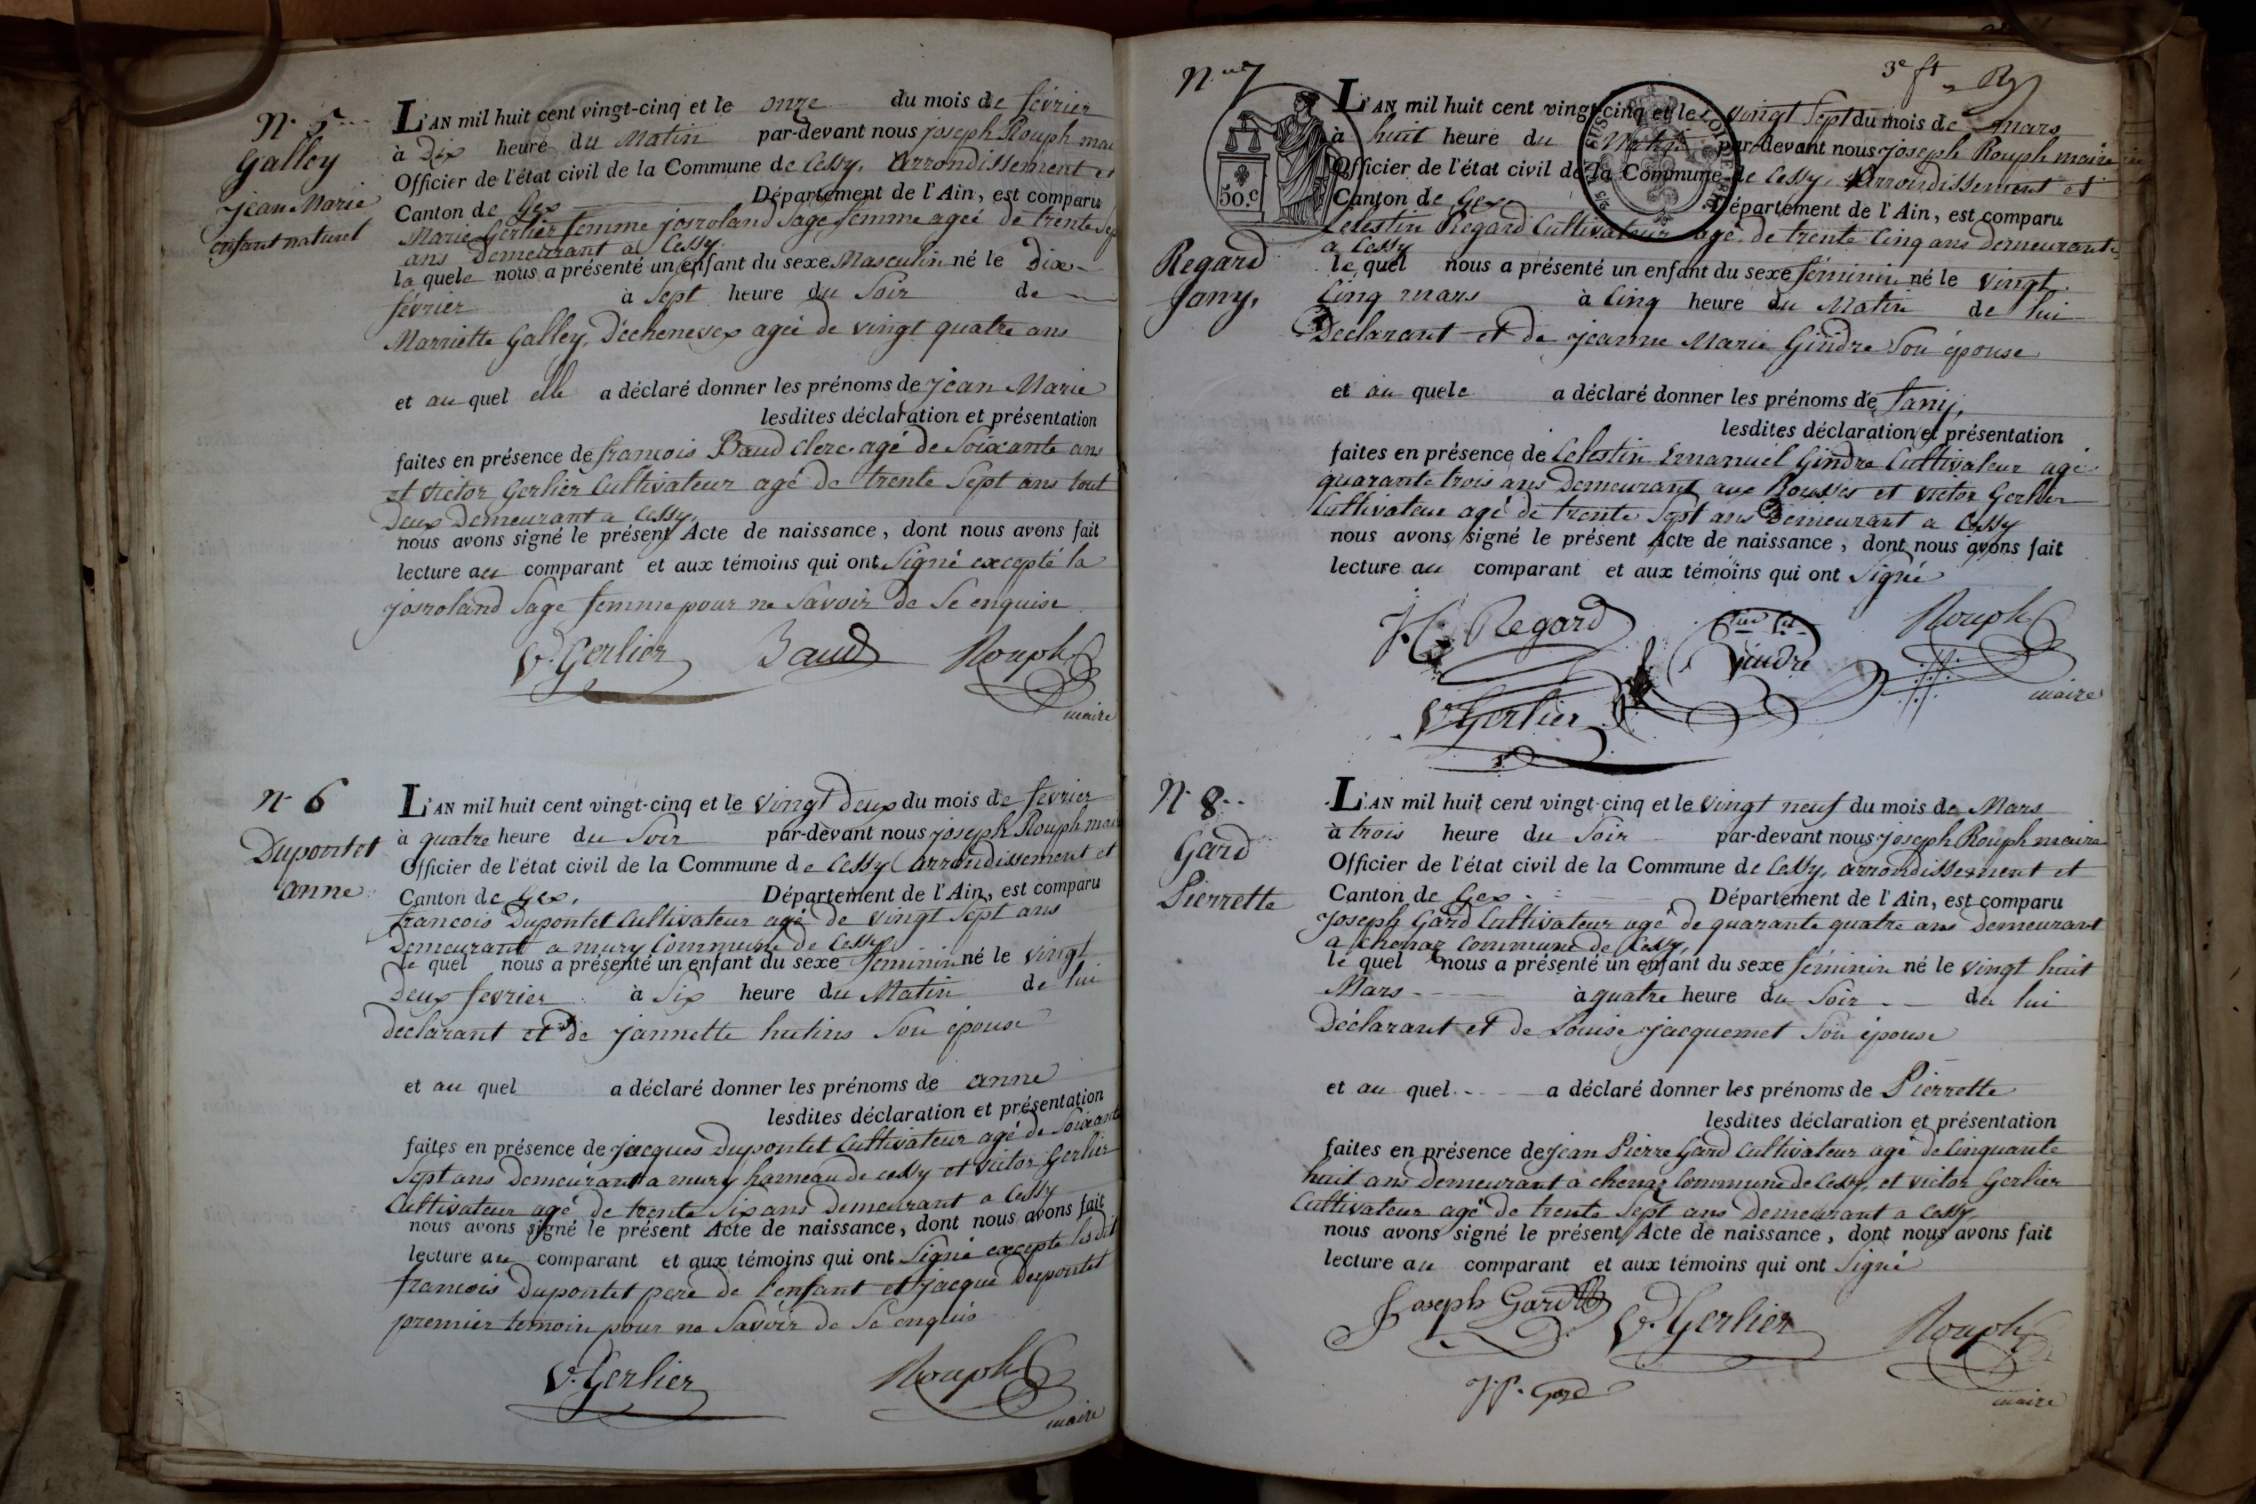 N.° 5
Galley
jean Marie
enfant naturel
L'AN mil huit cent vingt-cinq et le onze du mois de février
à Dix heure du Matin par-devant nous joseph Rouph
Officier de l'état civil de la Commune de Cessy, Arrondissement et
Canton de Gex Département de l'Ain, est comparu
Marie Gerlier femme josroland Sage femme agée de trente
ans Demeurant a Cessy
la quele nous a présenté un enfant du sexe Masculin né le Dix
février à Sept heure du Soir de
Marriette Galley, Dechenevex agée de vingt quatre ans
et au quel elle a déclaré donner les prénoms de jean Marie
lesdites déclaration et présentation
faites en présence de francois Baud Clerc agé de Soixante ans
et victor Gerlier Cultivateur agé de trente Sept ans tout
Deux Demeurant a Cessy,
nous avons signé le présent Acte de naissance, dont nous avons fait
lecture au comparant et aux témoins qui ont Signé excepté la
josroland Sage femme pour ne Savoir de Se enquise
V. Gerlier Baud Rouph
maire
N.° 6
Dupontet
anne
L'AN mil huit cent vingt-cinq et le vingt deux du mois de fevrier
à quatre heure du Soir par-devant nous joseph Rouph
Officier de l'état civil de la Commune de Cessy Arrondissement et
Canton de Gex, Département de l'Ain, est comparu
francois Dupontet Cultivateur agé de vingt Sept ans
Demeurant a mury Commune de Cessy
le quel nous a présenté un enfant du sexe feminin né le vingt
Deux fevrier à Six heure du Matin de lui
declarant et de jannette hutins Son épouse
et au quel a déclaré donner les prénoms de anne
lesdites déclaration et présentation
faites en présence de jacques Dupontet Cultivateur agé de Soixante
Sept ans Demeurant a mury hameau de cessy et victor Gerlier
Cultivateur agé de trente Six ans demeurant a Cessy
nous avons signé le présent Acte de naissance, dont nous avons fait
lecture au comparant et aux témoins qui ont Signé excepté les dit
francois Dupontet pere de l'enfant et jacque Dupontet
premier temoin pour ne Savoir de Se enquis
V. Gerlier Rouph
maire
N.° 7
3e ft
50.C
Regard
fany,
L'AN mil huit cent vingt-cinq et le vingt Sept du mois de mars
à huit heure du Matin par-devant nous joseph Rouph maire
Officier de l'état civil de la Commune de Cessy, Arrondissement et
Canton de Gex Département de l'Ain, est comparu
Celestin Regard Cultivateur agé de trente Cinq ans Demeurant
a Cessy
le quel nous a présenté un enfant du sexe féminin né le vingt
Cinq mars à Cinq heure du Matin de lui
Declarant et de jeanne Marie Gindre Son épouse
et au quele a déclaré donner les prénoms de fany,
lesdites déclaration et présentation
faites en présence de Celestin Emanuel Gindre Cultivateur agé
quarante trois ans Demeurant aux Rousses et victor Gerlier
Cultivateur agé de trente Sept ans Demeurant a Cessy
nous avons signé le présent Acte de naissance, dont nous avons fait
lecture au comparant et aux témoins qui ont Signé
Regard Gindre Rouph
maire
V. Gerlier
N.° 8
Gard
Pierrette
L'AN mil huit cent vingt-cinq et le vingt neuf du mois de Mars
à trois heure du Soir par-devant nous joseph Rouph maire
Officier de l'état civil de la Commune de Cessy, arrondissement et
Canton de Gex Département de l'Ain, est comparu
Joseph Gard Cultivateur agé de quarante quatre ans Demeurant
a chenaz Commune de Cessy,
le quel nous a présenté un enfant du sexe féminin né le vingt huit
Mars à quatre heure du Soir de lui
Déclarant et de Louise jacquemet Son épouse
et au quel a déclaré donner les prénoms de Pierrette
lesdites déclaration et présentation
faites en présence de jean Pierre Gard Cultivateur agé de Cinquante
huit ans Demeurant a chenaz Commune de Cessy, et victor Gerlier
Cultivateur agé de trente Sept ans Demeurant a Cessy
nous avons signé le présent Acte de naissance, dont nous avons fait
lecture au comparant et aux témoins qui ont Signé
Joseph Gard V. Gerlier Rouph
maire
J. P. Gard